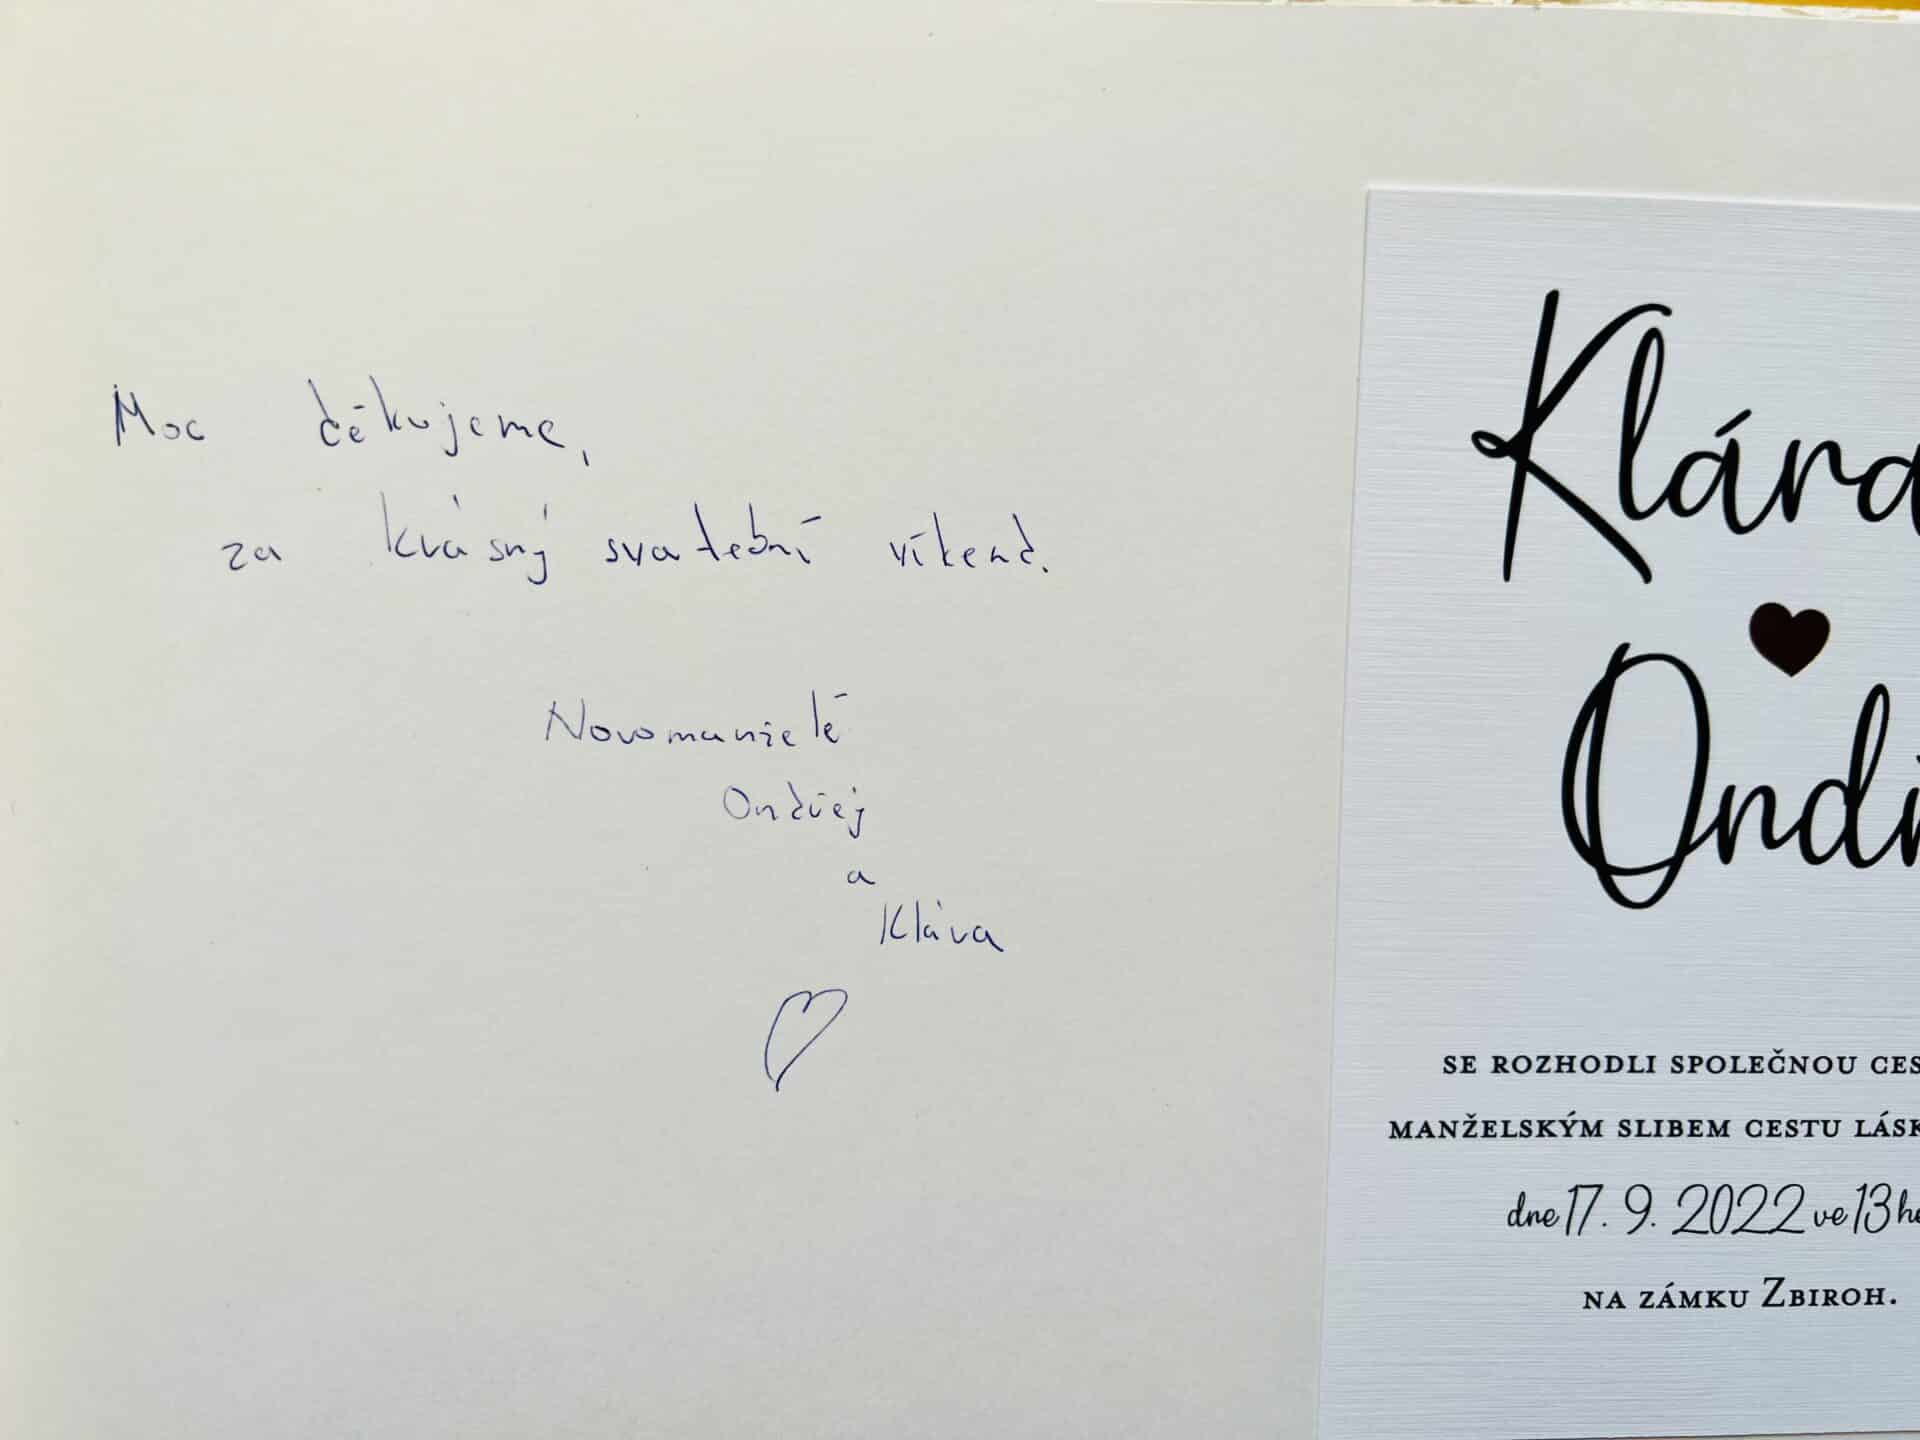 Moc děkujeme,
za krásný svatební víkend.
Novomanželé
Ondřej
a
Klára
Klára
Ondř
SE ROZHODLI SPOLEČNOU CES
MANŽELSKÝM SLIBEM CESTU LÁSK
dne 17. 9. 2022 ve 13 ho
NA ZÁMKU ZBIROH.